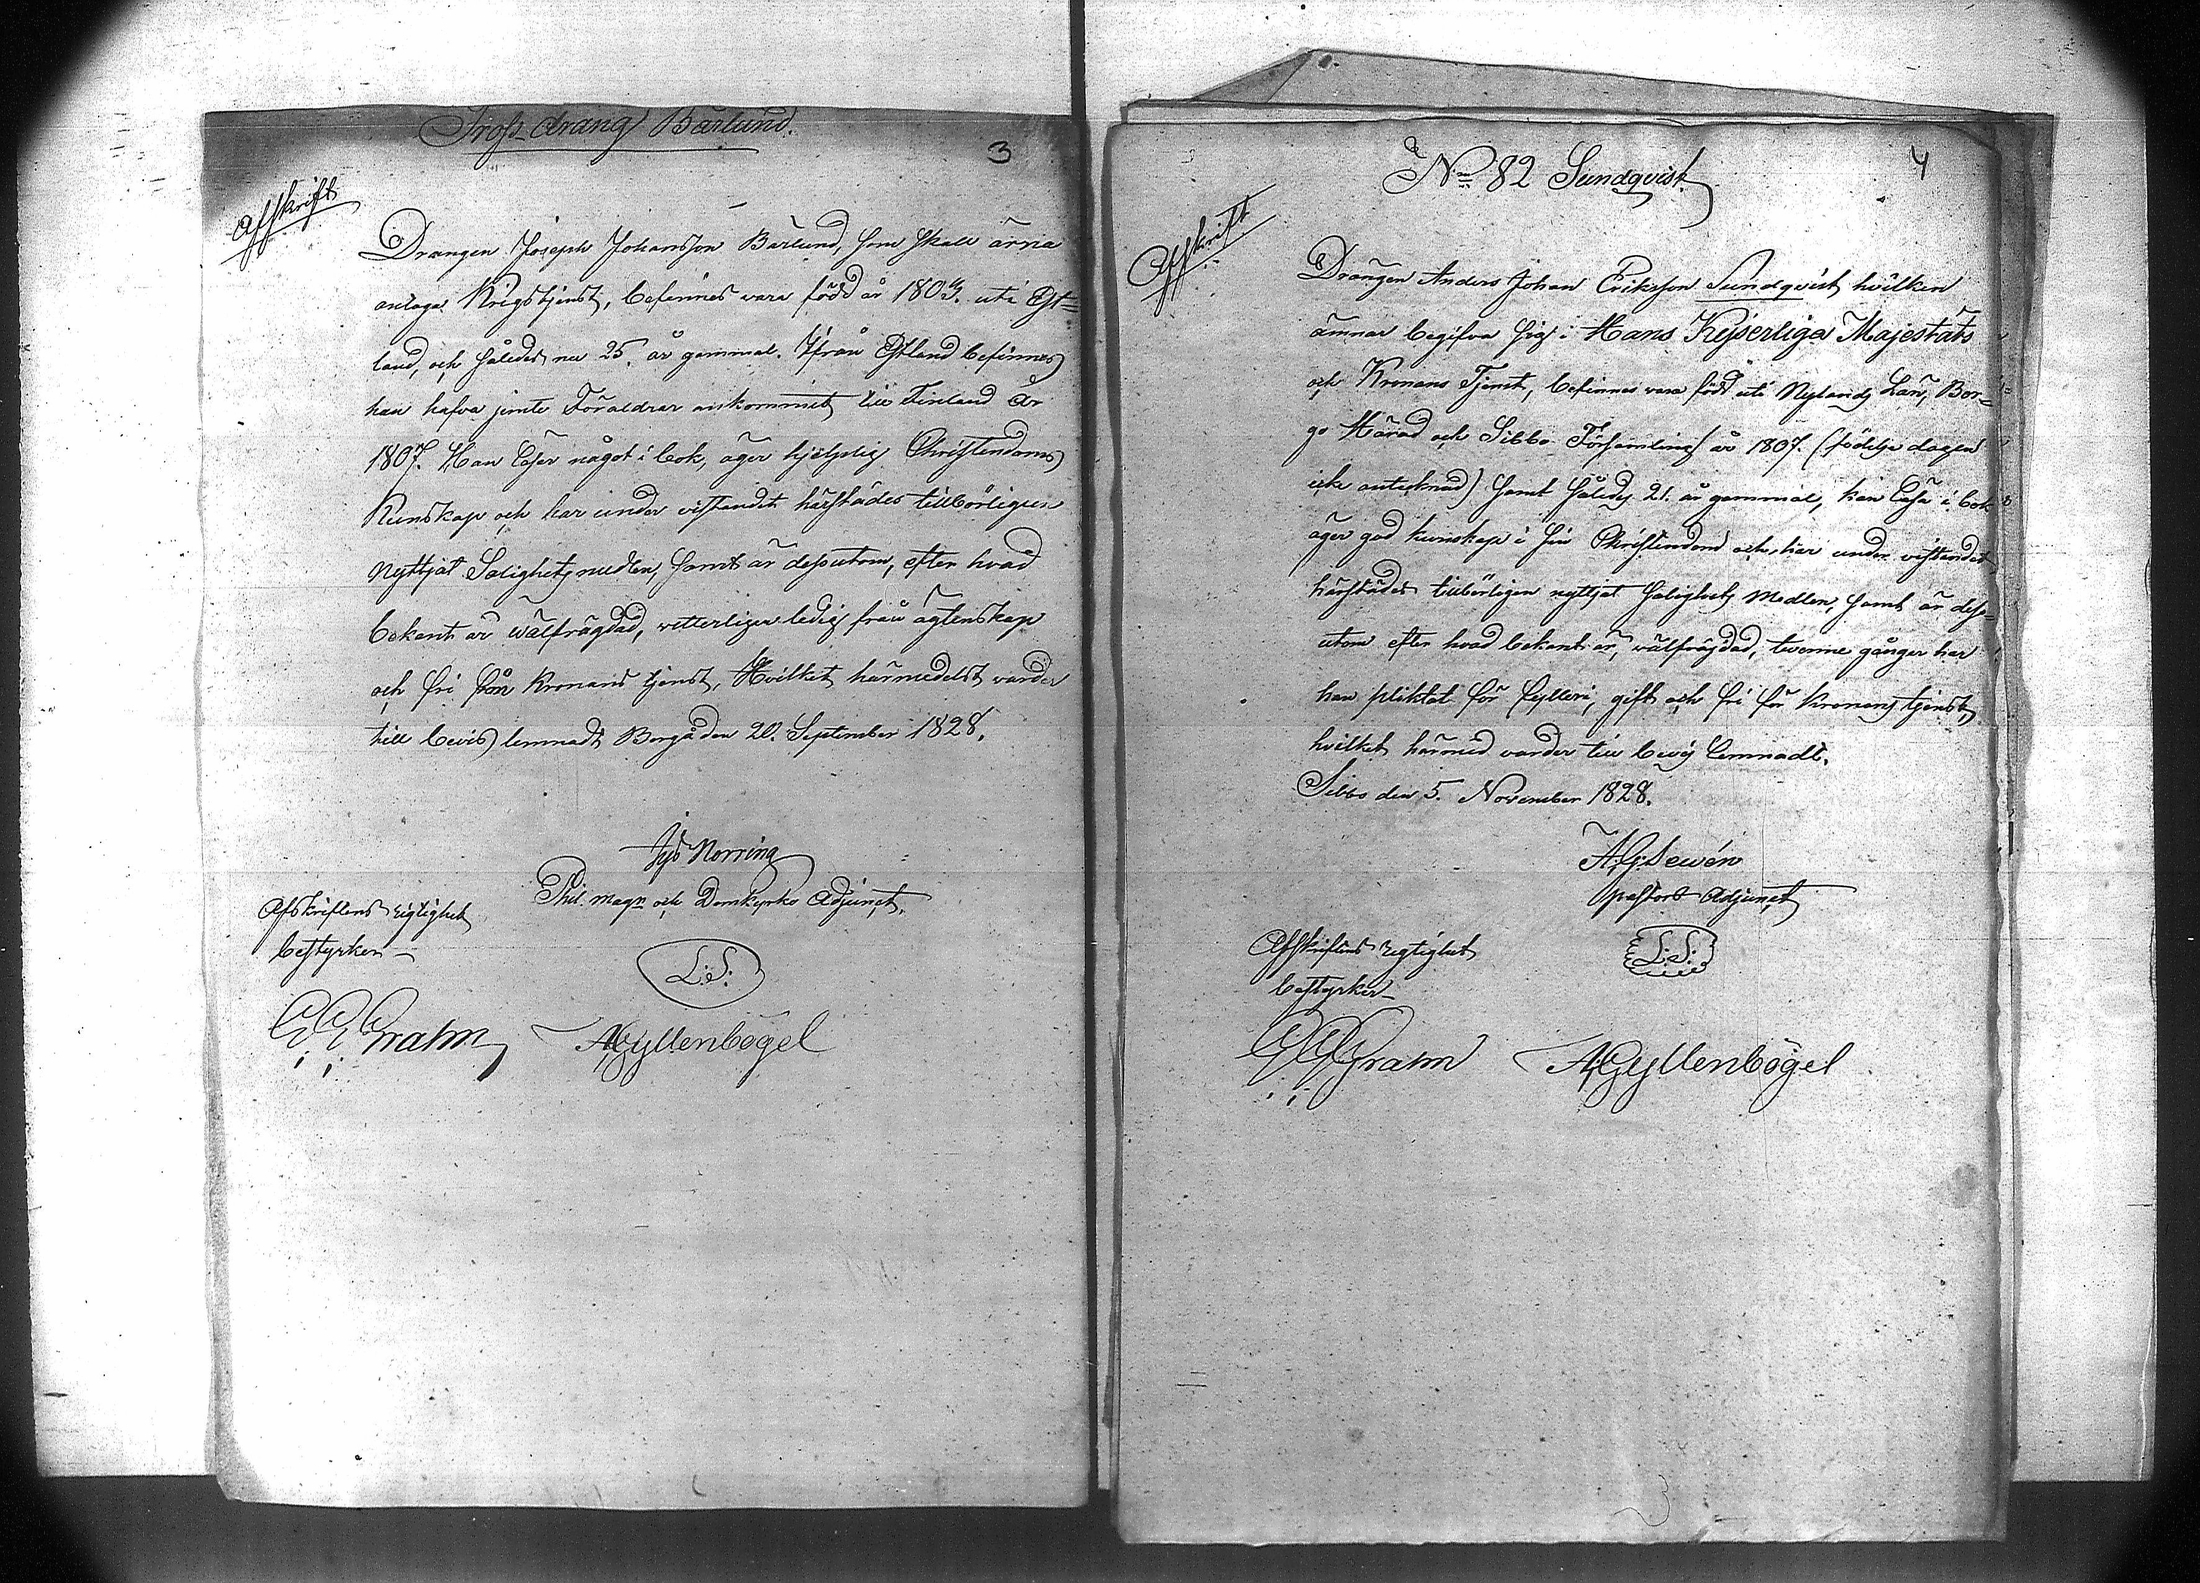 Tross-dräng Bärlund.
3
Afskrift
Drängen Joseph Johansson Bärlund, som skall ärna
antaga Krigstjenst, befinnes vara född år 1803. uti Est=
land, och således nu 25. år gammal. Ifrån Estland befinnes
han hafva jemte Föräldrar ankommit till Finland År
1807. Han läser något i bok, äger hjelplig Christendoms
Kunskap och har under vistandet härstädes tillbörligen
Nyttjat Salighetsmedlen, samt är dessutom, efter hvad
bekant är wälfrägdad, vetterligen ledig från ägtenskap
och fri från Kronans tjenst, Hvilket härmedelst varder
till bevis lemnadt Borgå den 20. September 1828.
Norring
Phil. magr och Domkyrko Adjunct.
L.S.
Afskriftens rigtighet
bestyrker
Grahn
AGyllenbögel
No 82 Sundqvist
4
Afskrift
Drängen Anders Johan Eriksson Sundqvist hvilken
ämnar begifva sig i Hans Kejserliga Majestäts
och Kronans Tjenst, befinnes vara född uti Nylands Län, Bor=
go Härad och Sibbo Församling år 1807. (födelse dagen
icke antecknad) samt således 21. år gammal, kan läsa i bok
äger god kunskap i sin Christendom och har under vistandet
härstädes tillbörligen nyttjat Salighets Medlen, samt är dess=
utom efter hvad bekant är, välfrägdad, tvenne gånger har
han pliktat för fylleri, gift och fri för Kronans tjenst,
hvilket härmed varder till bevis lemnadt.
Sibbo den 5. November 1828.
A.G. Lewén
Pastors Adjunct
L.S.
Afskriftens rigtighet
bestyrker
Grahn
AGyllenbögel